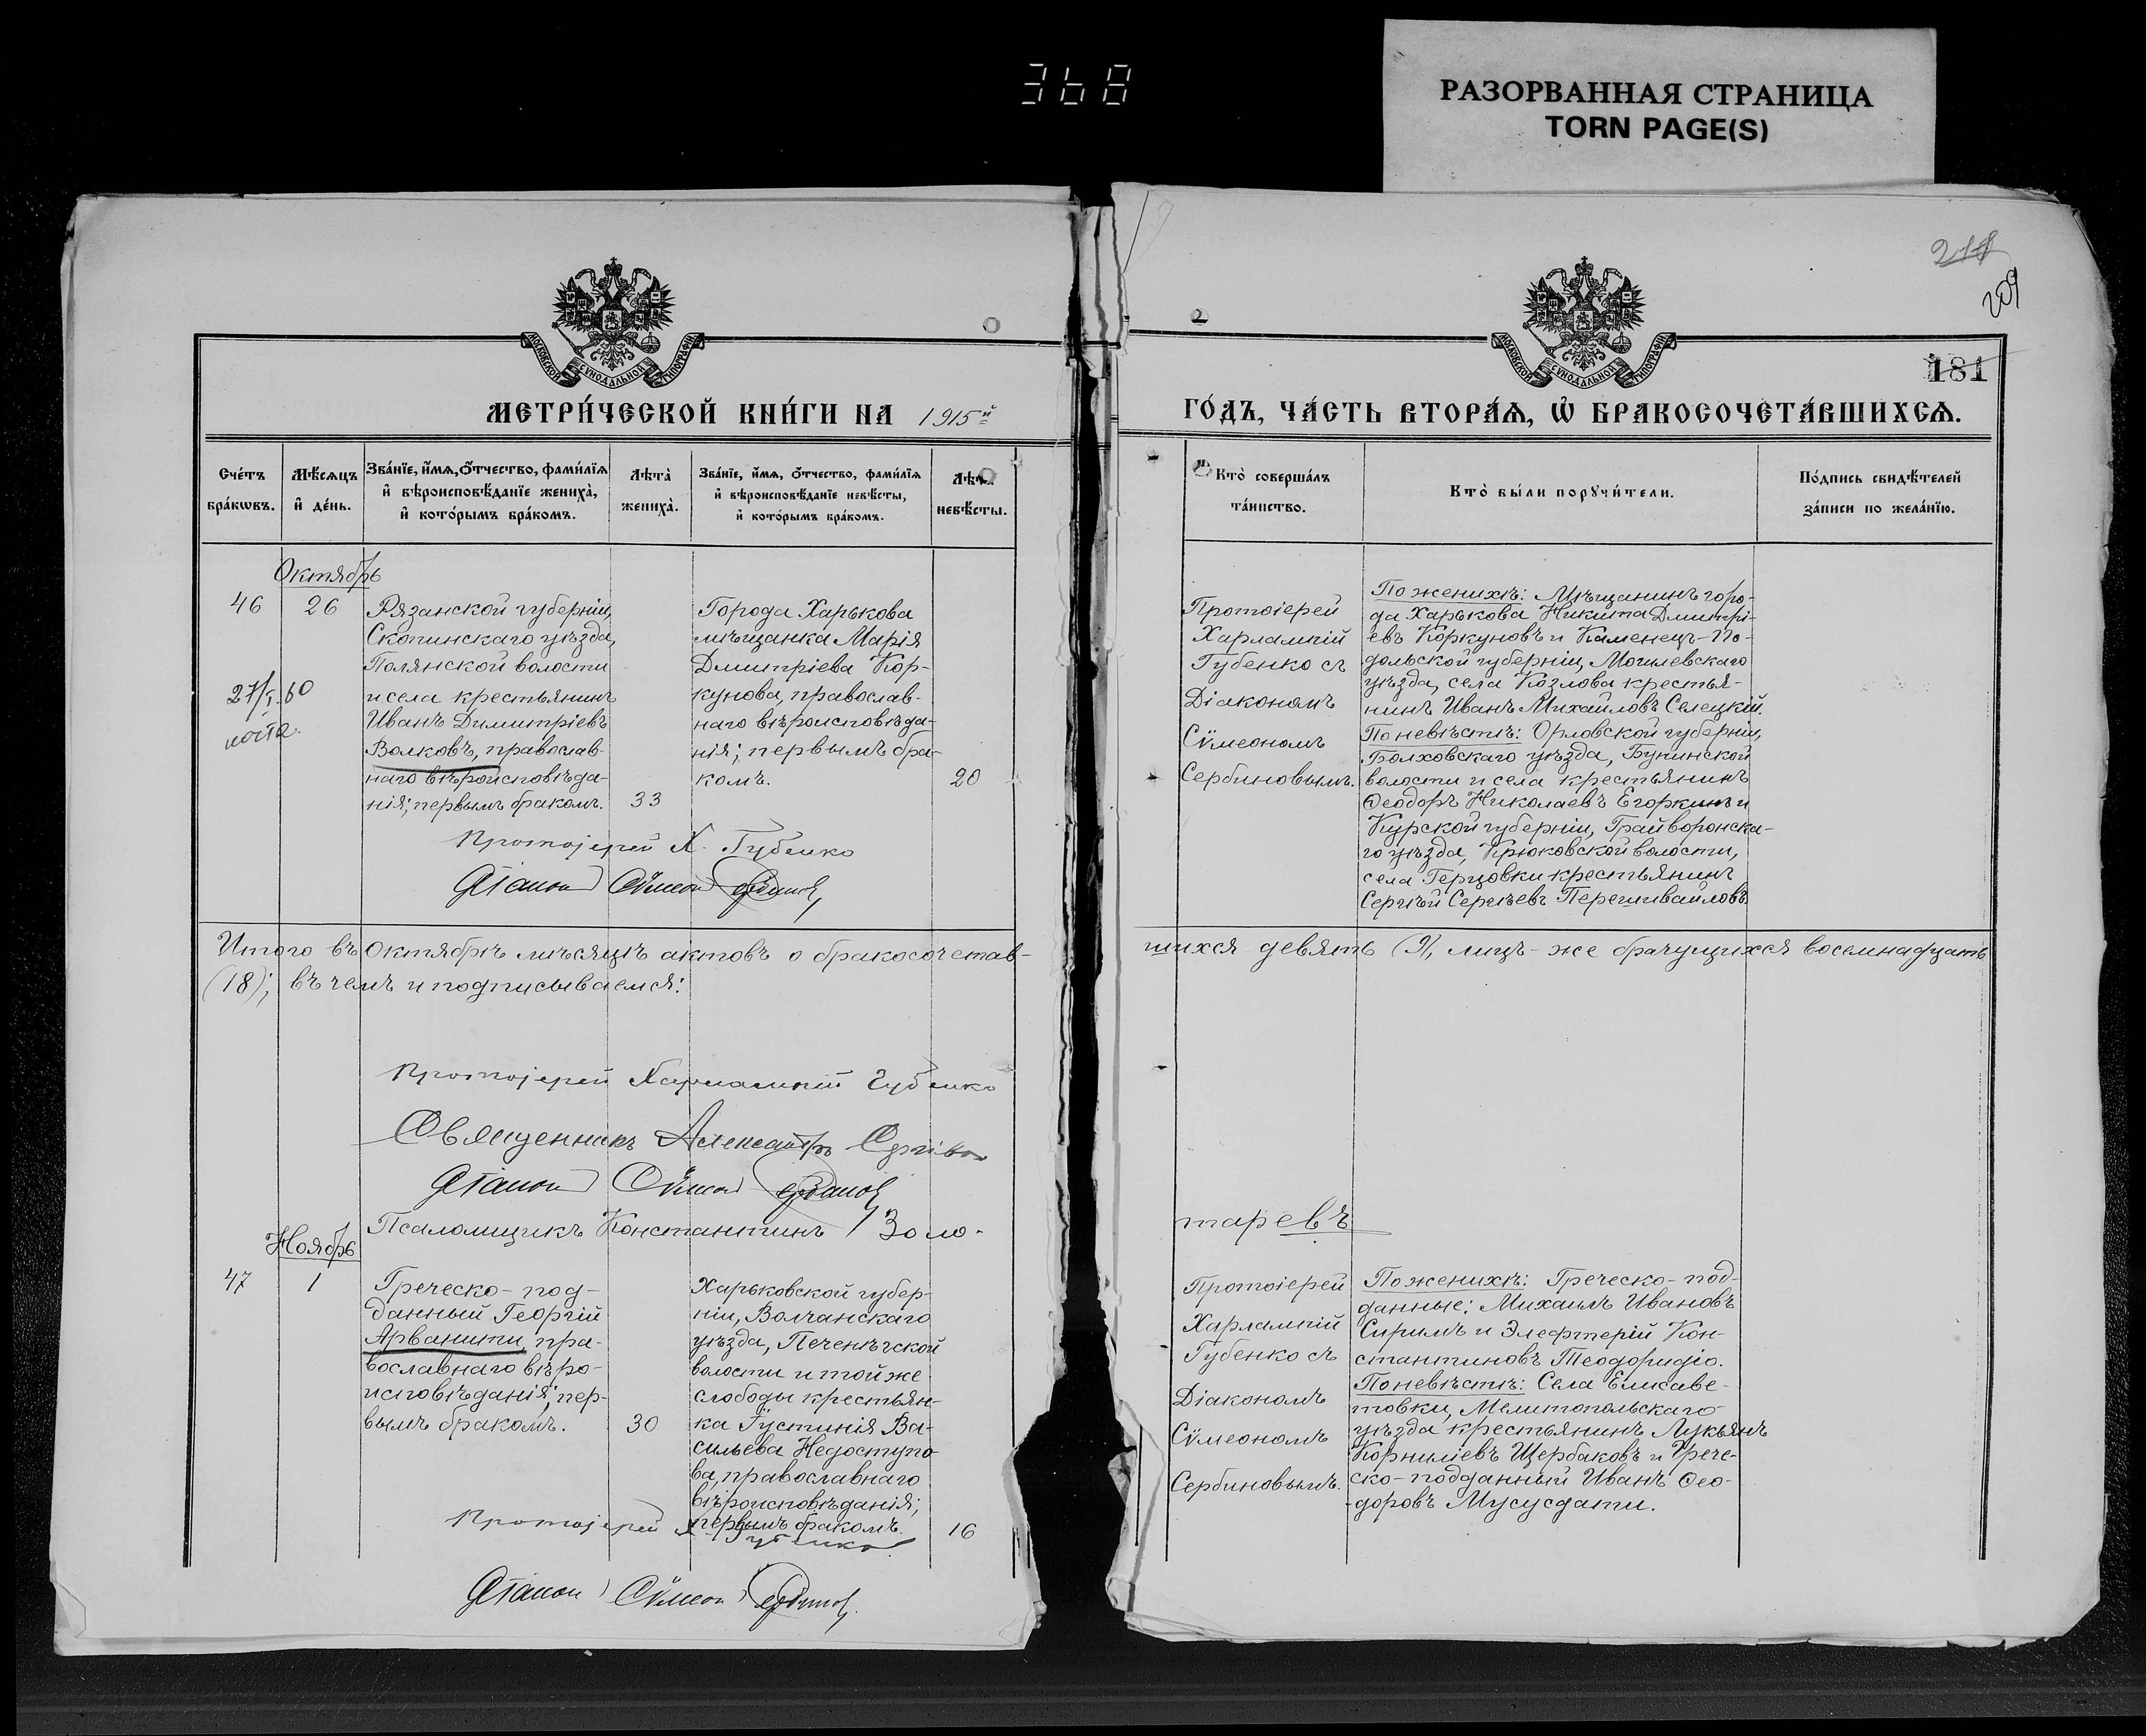 368
РАЗОРВАННАЯ СТРАНИЦА
TORN PAGE(S)
211
209
181
МОСКОВСКОЙ СѴНОДАЛЬНОЙ ТИПОГРАФІИ
МОСКОВСКОЙ СѴНОДАЛЬНОЙ ТИПОГРАФІИ
МЕТРИ́ЧЕСКОЙ КНИ́ГИ НА 1915й
ГО́ДЪ, ЧА́СТЬ ВТОРА́Ѧ, Ѡ҆ БРАКОСОЧЕТА́ВШИХСѦ.
Сче́тъ
бра́кѡвъ.
Мѣ́сѧцъ
и҆ де́нь.
Зва́нїе, и҆́мѧ, ѻ҆́тчество, фами́лїѧ
и҆ вѣроисповѣ́данїе жениха̀,
и҆ кото́рымъ бра́комъ.
Лѣта̀
жениха̀.
Зва́нїе, и҆́мѧ, ѻ҆́тчество, фами́лїѧ
и҆ вѣроисповѣ́данїе невѣ́сты,
и҆ кото́рымъ бра́комъ.
Лѣта̀
невѣ́сты.
Кто̀ соверша́лъ
та́инство.
Кто̀ бы́ли порꙋчи́тели.
По́дпись свидѣ́телей
за́писи по жела́нїю.
Октябрь
46
26
Рязанской губерніи,
Скопинскаго уѣзда,
Полянской волости
и села крестьянинъ
Иванъ Димитріевъ
Волковъ, православ-
наго вѣроисповѣда-
нія; первымъ бракомъ.
33
27/I 60
Города Харькова
мѣщанка Марія
Димитріева Кор-
кунова, православ-
наго вѣроисповѣда-
нія; первымъ бра-
комъ.
20
Протоіерей
Харлампій
Губенко съ
Діакономъ
Сѵмеономъ
Сербиновымъ.
По женихѣ: Мѣщанинъ горо-
да Харькова Никита Дмитрі-
евъ Коркуновъ и Каменецъ-По-
дольской губерніи, Могилевскаго
уѣзда, села Козлова крестья-
нинъ Иванъ Михайловъ Селецкій.
По невѣстѣ: Орловской губерніи,
Болховскаго уѣзда, Бунинской
волости и села крестьянинъ
Ѳеодоръ Николаевъ Егоркинъ и
Курской губерніи, Грайворонска-
го уѣзда, Крюковской волости,
села Герцовки крестьянинъ
Сергѣй Сергѣевъ Перешивайловъ.
Протоіерей Х. Губенко
Діаконъ Сѵмеон Сербинов
Итого въ Октябрѣ мѣсяцѣ актовъ о бракосочетав-
шихся девять (9), лицъ-же брачущихся восемнадцать
(18); въ чемъ и подписываемся:
Протоіерей Харлампій Губенко
Священникъ Александръ
Діаконъ Сѵмеон Сербинов
Псаломщикъ Константинъ Золо-
таревъ
Ноябрь
47
1
Греческо-под-
данный Георгій
Арванити, пра-
вославнаго вѣро-
исповѣданія; пер-
вымъ бракомъ.
30
Харьковской губер-
ніи, Волчанскаго
уѣзда, Печенѣгской
волости и той же
слободы крестьян-
ка Іустинія Ва-
сильева Недоступо-
ва, православнаго
вѣроисповѣданія;
первымъ бракомъ.
16
Протоіерей
Харлампій
Губенко съ
Діакономъ
Сѵмеономъ
Сербиновымъ.
По женихѣ: Греческо-под-
данные: Михаилъ Ивановъ
Сиримъ и Элефтерій Кон-
стантиновъ Теодоридіо.
По невѣстѣ: Села Елисаве-
товки, Мелитопольскаго
уѣзда крестьянинъ Лукьянъ
Корниліевъ Щербаковъ и Грече-
ско-подданный Иванъ Ѳео-
доровъ Мусусдати.
Протоіерей Х. Губенко
Діаконъ Сѵмеон Сербинов.